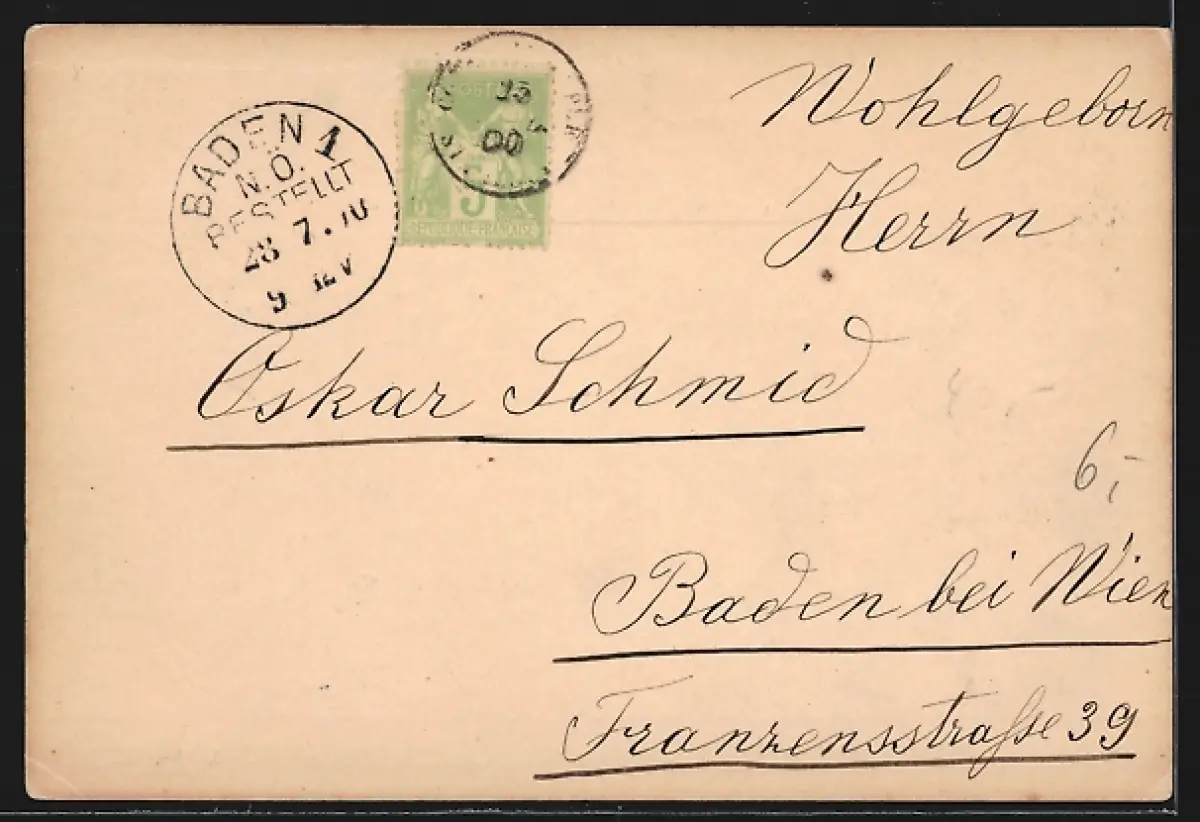 BADEN 1
N.Ö.
BESTELLT
28 7.10
9
POSTE
5
REPUBLIQUE FRANÇAISE
15
00
Wohlgeborn
Herrn
Oskar Schmid
6,-
Baden bei Wien
Franzensstraße 39